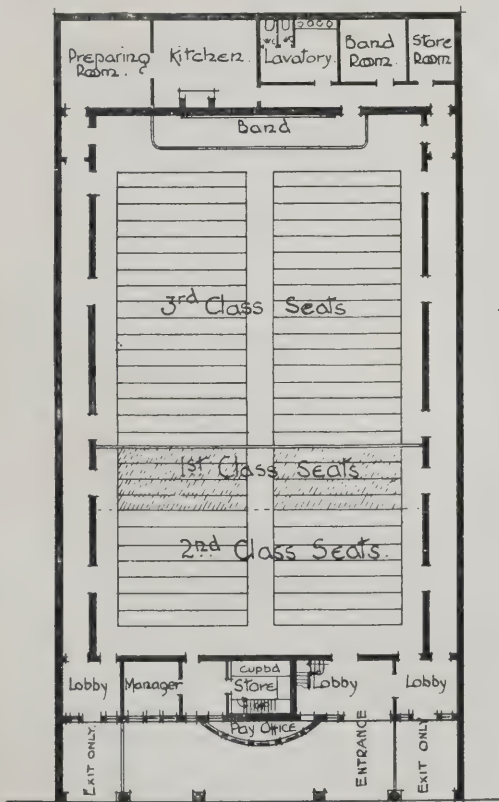 Preparing Room.
Kitchen.
Lavatory.
Band Room.
Store Room
Band
3rd Class Seats
1st Class Seats
2nd Class Seats.
Lobby
Manager
cupbd
Store
Lobby
Lobby
Pay Office
EXIT ONLY.
ENTRANCE
EXIT ONLY